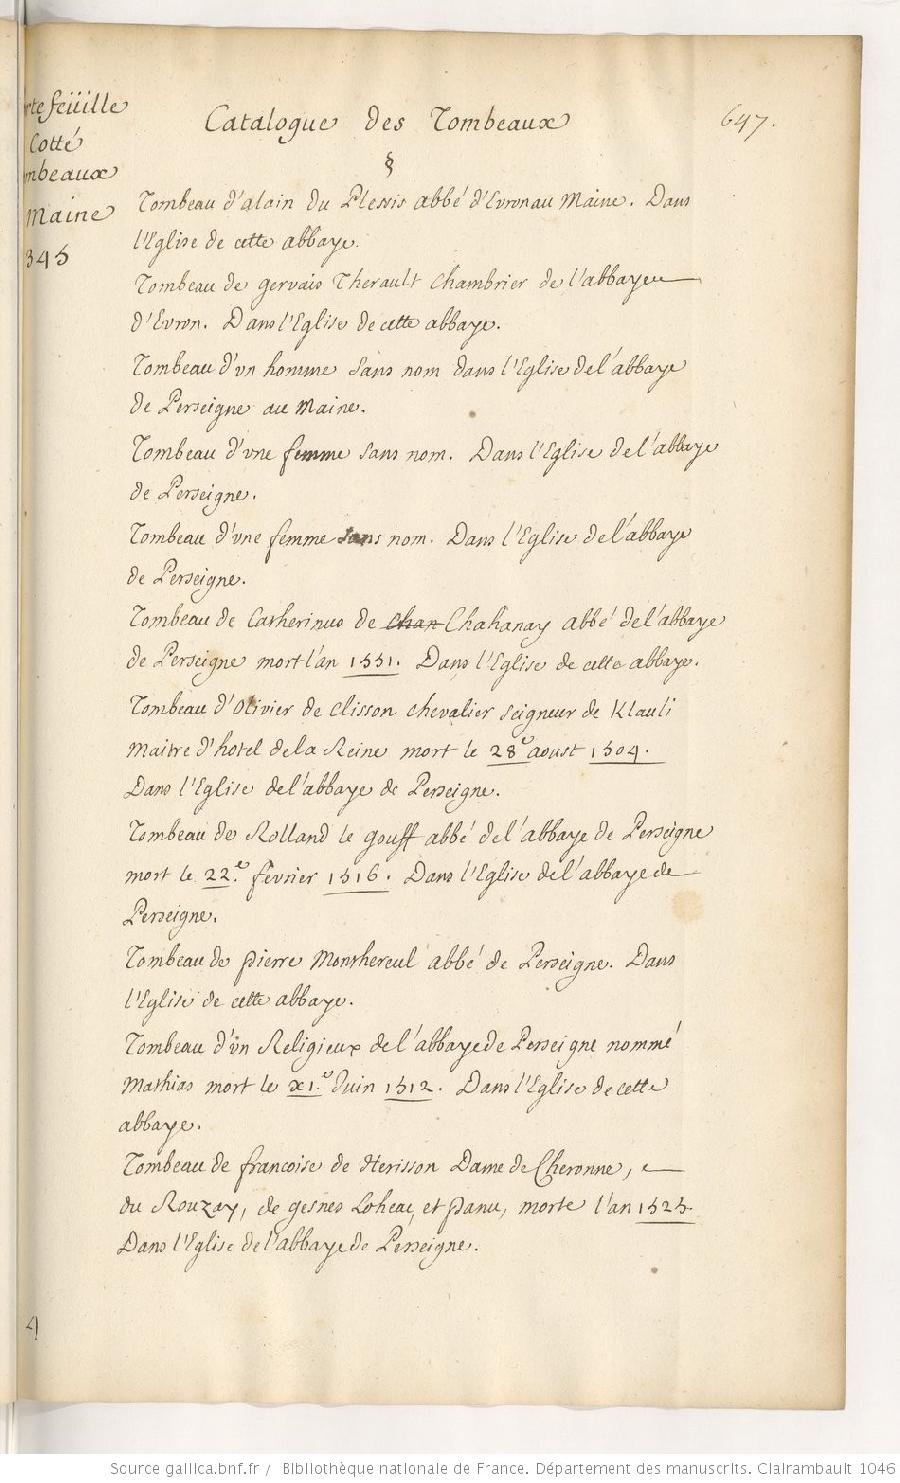 rtefeüille
Cotté
mbeaux
Maine
345
Catalogue des Tombeaux
647.
§
Tombeau d'alain du Plessis abbé d'Evron au Maine. Dans
l'Eglise de cette abbaye.
Tombeau de gervais Therault Chambrier de l'abbaye
d'Evron. Dans l'Eglise de cette abbaye.
Tombeau d'vn homme sans nom dans l'Eglise de l'abbaye
de Perseigne au Maine.
Tombeau d'vne femme sans nom. Dans l'Eglise de l'abbaye
de Perseigne.
Tombeau d'vne femme sans nom. Dans l'Eglise de l'abbaye
de Perseigne.
Tombeau de Catherinus de Chan Chahanay abbé de l'abbaye
de Perseigne mort l'an 1551. Dans l'Eglise de cette abbaye.
Tombeau d'Olivier de Clisson chevalier seigneur de
Maitre d'hotel de la Reine mort le 28e aoust 1504.
Dans l'Eglise de l'abbaye de Perseigne.
Tombeau de Rolland le gouff abbé de l'abbaye de Perseigne
mort le 22.e fevrier 1516. Dans l'Eglise de l'abbaye de
Perseigne.
Tombeau de pierre Monthereul abbé de Perseigne. Dans
l'Eglise de cette abbaye.
Tombeau d'ün Religieux de l'abbaye de Perseigne nommé
Mathias mort le x1.e Juin 1512. Dans l'Eglise de cette
abbaye.
Tombeau de francoise de Herisson Dame de Cheronne,
du Rouzay, de gesnes Loheac, et panu, morte l'an 1525.
Dans l'Eglise de l'abbaye de Perseigne.
4
Source gallica.bnf.fr / Bibliothèque nationale de France. Département des manuscrits. Clairambault 1046